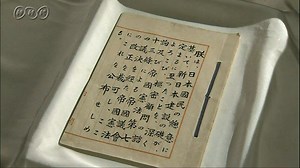 NHK
朕は、日本國民の總意に
基いて、新日本建設の礎が、
定まるに至つたことを、深く
よろこび、樞密顧問の諮詢
及び帝國憲法第七
十三條による帝國議會
の議決を經た帝國憲法の
改正を裁可し、ここに
これを公布せしめ